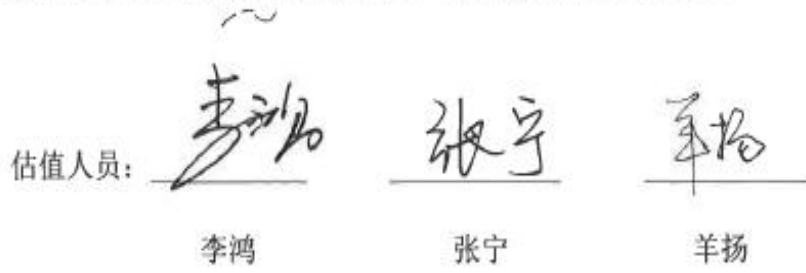 估值人员：李鸿 张宁 羊扬
李鸿 张宁 羊扬